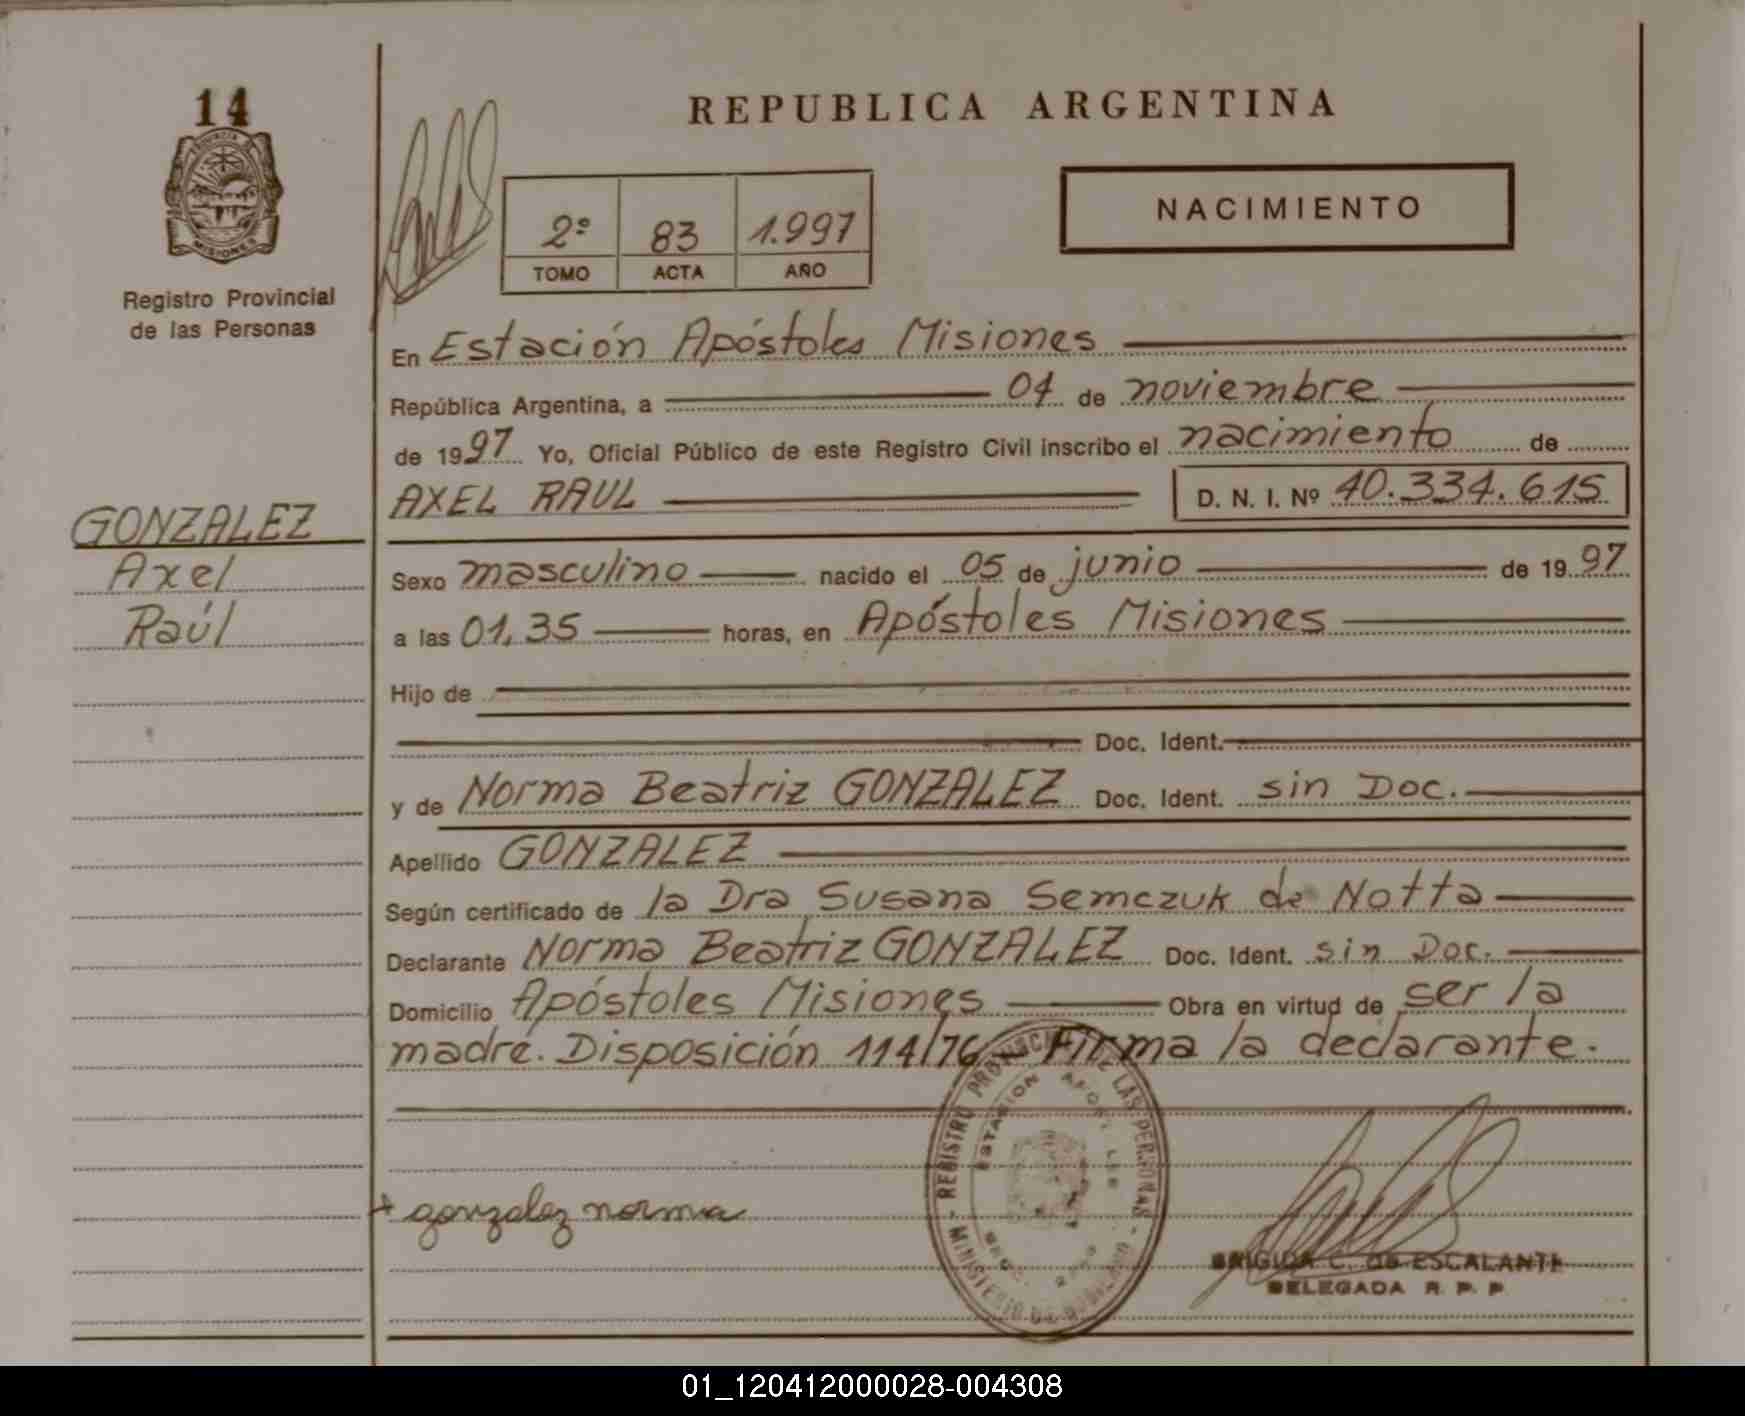 14
PROVINCIA DE
MISIONES
Registro Provincial
de las Personas
GONZALEZ
Axel
Raúl
REPUBLICA ARGENTINA
2º 83 1.997
TOMO ACTA AÑO
NACIMIENTO
En Estación Apóstoles Misiones
República Argentina, a 04 de noviembre
de 1997 Yo, Oficial Público de este Registro Civil inscribo el nacimiento de
AXEL RAUL D. N. I. Nº 40.334.615
Sexo masculino nacido el 05 de junio de 1997
a las 01,35 horas, en Apóstoles Misiones
Hijo de
Doc. Ident.
y de Norma Beatriz GONZALEZ Doc. Ident. sin Doc.
Apellido GONZALEZ
Según certificado de la Dra Susana Semczuk de Notta
Declarante Norma Beatriz GONZALEZ Doc. Ident. sin Doc.
Domicilio Apóstoles Misiones Obra en virtud de ser la
madre. Disposición 114/76. Firma la declarante.
REGISTRO PROVINCIAL DE LAS PERSONAS
ESTACION APOSTOLES
MINISTERIO DE GOBIERNO
gonzalez norma
BRIGIDA C. de ESCALANTE
DELEGADA R. P. P.
01_120412000028-004308